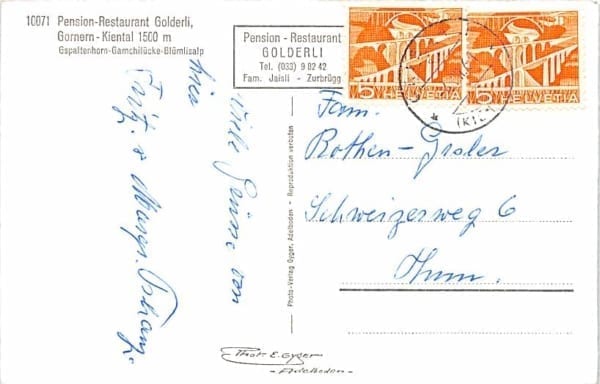 10071 Pension-Restaurant Golderli,
Gornern-Kiental 1500 m
Gspaltenhorn-Gamchilücke-Blümlisalp
Pension - Restaurant
GOLDERLI
Tel. (033) 9 82 42
Fam. Jaisli - Zurbrügg
5 HELVETIA
5 HELVETIA
viele Grüsse von
Fritz & Margr.
Photo-Verlag Gyger, Adelboden - Reproduktion verboten
Fam.
Rothen-
Schweizerweg 6
Thun.
Phot. E. Gyger
- Adelboden -